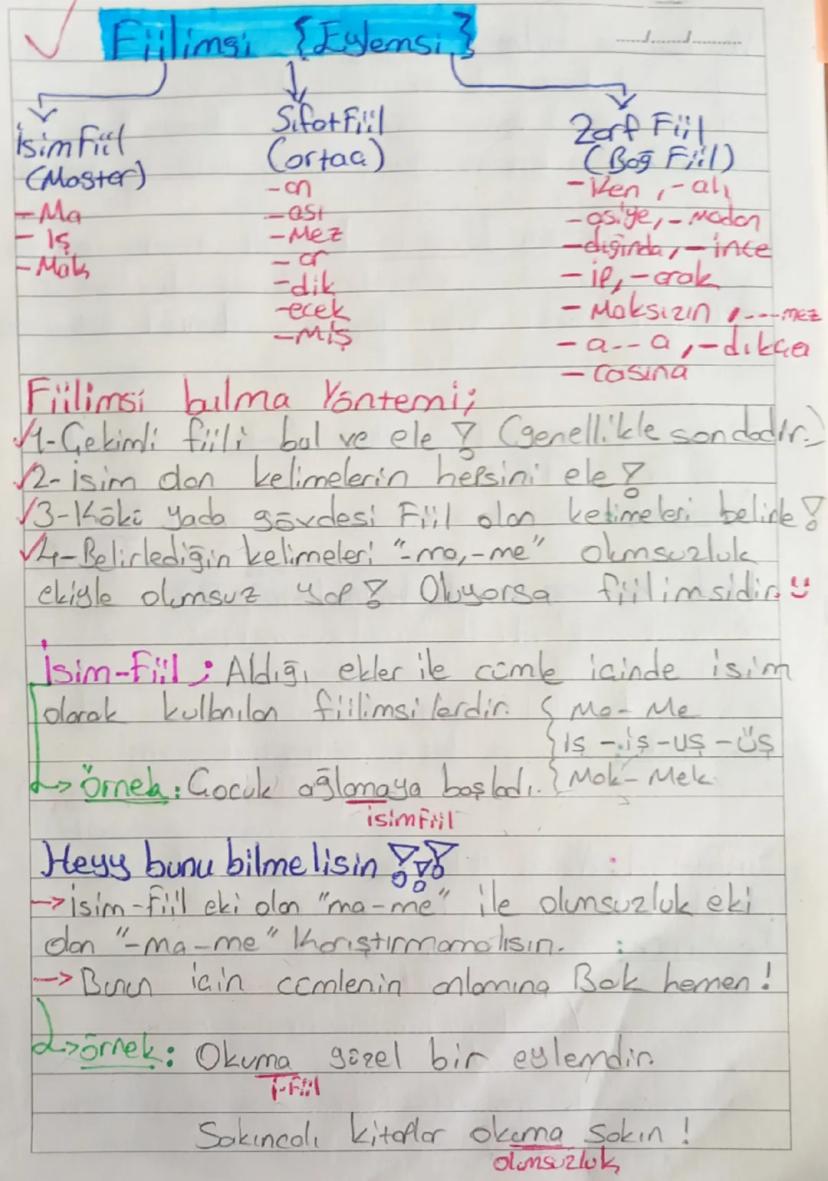 Fiilimsi {Eylemsi}
İsim Fiil
(Master)
-Ma
- Iş
-Mak
Sıfat Fiil
(ortaç)
-an
-ası
-Mez
-ar
-dik
-ecek
-Miş
Zarf Fiil
(Bağ Fiil)
-Ken , -alı
-asiye, -madan
-dığında, -ince
-ip, -arak
- Maksızın ,----mez
- a-- a ,-dıkça
- casına
Fiilimsi bulma Yöntemi;
1-Çekimli fiili bul ve ele ! (genellikle sondadır.)
2-İsim olan kelimelerin hepsini ele !
3-Kökü yada gövdesi Fiil olan kelimeleri belirle !
4-Belirlediğin kelimeleri "-ma,-me" olumsuzluk
ekiyle olumsuz yap ! Oluyorsa fiilimsidir.
İsim-Fiil ; Aldığı ekler ile cümle içinde isim
olarak kullanılan fiilimsilerdir. { Ma- Me
{ Iş -iş-uş-üş
→ Örnek: Çocuk ağlamaya başladı. { Mak- Mek
isimfiil
Heyy bunu bilmelisin !!!
→ İsim-fiil eki olan "ma-me" ile olumsuzluk eki
olan "-ma-me" Karıştırmamalısın.
→ Bunun için cümlenin anlamına Bak hemen !
→ örnek: Okuma güzel bir eylemdir.
i-Fiil
Sakıncalı kitaplar okuma sakın !
olumsuzluk